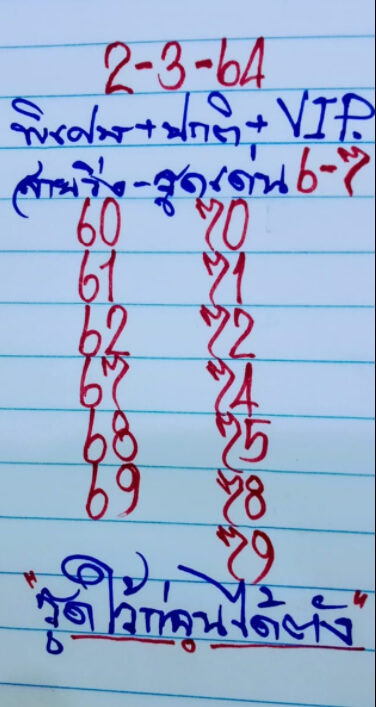 2-3-64
พิเศษ+ปกติ+VIP.
สายวิ่ง-รูดเด่น 6-7
60 70
61 71
62 72
67 74
68 75
69 78
79
"รูดไว้ก่อนได้ตัง"